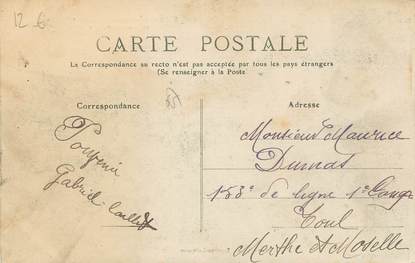 12 6
CARTE POSTALE
La Correspondance au recto n'est pas acceptée par tous les pays étrangers
(Se renseigner à la Poste
Correspondance
Adresse
Monsieur Maurice
Dumas
153e de ligne 1e
Toul
Gabriel
Merthe et Moselle